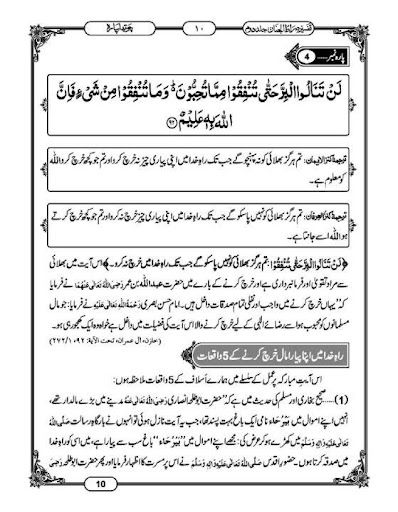 چوتھا پارہ
۱۰
تفسیر صراط الجنان جلد دوم
پارہ نمبر ...... 4
لَنْ تَنَالُوا الْبِرَّ حَتّٰى تُنْفِقُوْا مِمَّا تُحِبُّوْنَ ؕ۬ وَ مَا تُنْفِقُوْا مِنْ شَیْءٍ فَاِنَّ
اللّٰهَ بِهٖ عَلِیْمٌ ﴿۹۲﴾
ترجمۂ کنزالایمان: تم ہرگز بھلائی کو نہ پہنچو گے جب تک راہِ خدا میں اپنی پیاری چیز نہ خرچ کرو اور تم جو کچھ خرچ کرو اللہ
کو معلوم ہے۔
ترجمۂ کنزالعرفان: تم ہرگز بھلائی کو نہیں پا سکو گے جب تک راہِ خدا میں اپنی پیاری چیز خرچ نہ کرو اور تم جو کچھ خرچ کرتے
ہو اللہ اسے جانتا ہے۔
﴿لَنْ تَنَالُوا الْبِرَّ حَتّٰى تُنْفِقُوْا: تم ہرگز بھلائی کو نہیں پا سکو گے جب تک راہِ خدا میں خرچ نہ کرو۔﴾ اس آیت میں بھلائی
سے مراد تقویٰ اور فرمانبرداری ہے اور خرچ کرنے کے بارے میں حضرت عبداللہ بن عمر رَضِیَ اللہُ تَعَالٰی عَنْہُمَا نے فرمایا
کہ ’’یہاں خرچ کرنے میں واجب اور نفلی تمام صدقات داخل ہیں۔ امام حسن بصری رَحْمَۃُ اللہِ تَعَالٰی عَلَیْہِ نے فرمایا: جو مال
مسلمانوں کو محبوب ہو اسے رضائے الٰہی کے لیے خرچ کرنے والا اس آیت کی فضیلت میں داخل ہے خواہ وہ ایک کھجور ہی ہو۔
(خازن، ال عمران، تحت الآیۃ: ۹۲، ۲۷۲/۱)
راہِ خدا میں اپنا پیارا مال خرچ کرنے کے 5 واقعات
اس آیتِ مبارکہ پر عمل کے سلسلے میں ہمارے اَسلاف کے 5 واقعات ملاحظہ ہوں:
(1)......صحیح بخاری اور مسلم کی حدیث میں ہے کہ حضرت ابو طلحہ انصاری رَضِیَ اللہُ تَعَالٰی عَنْہُ مدینے میں بڑے مالدار تھے،
انہیں اپنے اموال میں بَیْرُحَاء نامی ایک باغ بہت پسند تھا، جب یہ آیت نازل ہوئی تو انہوں نے بارگاہِ رسالت صَلَّی اللہُ
تَعَالٰی عَلَیْہِ وَاٰلِہٖ وَسَلَّمَ میں کھڑے ہو کر عرض کی: مجھے اپنے اموال میں ’’بَیْرُحَاء‘‘ باغ سب سے پیارا ہے، میں اسی کو راہِ خدا
میں صدقہ کرتا ہوں۔ حضورِ اقدس صَلَّی اللہُ تَعَالٰی عَلَیْہِ وَاٰلِہٖ وَسَلَّمَ نے اس پر مسرت کا اظہار فرمایا اور پھر حضرت ابو طلحہ رَضِیَ
10